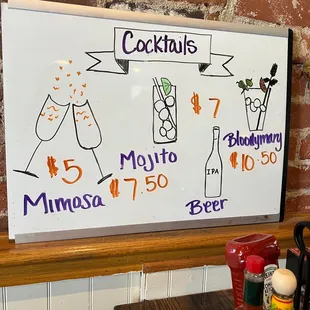 Cocktails
$5
Mimosa
Mojito
$7.50
$7
IPA
Beer
Bloodymary
$10.50